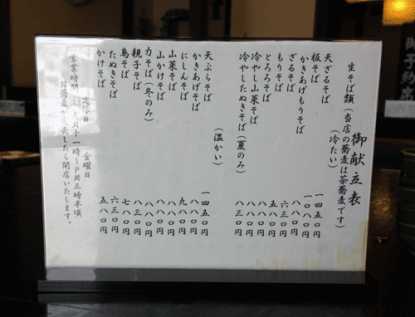 御献立表
生そば類(当店の蕎麦は茶蕎麦です)
(冷たい)
天ざるそば 一四五〇円
板そば
かきあげもりそば
ざるそば 六三〇円
もりそば 五八〇円
とろろそば 八八〇円
冷やし山菜そば 八八〇円
冷やしたぬきそば(夏のみ) 六三〇円
(温かい)
天ぷらそば 一四五〇円
かきあげそば 八八〇円
にしんそば 九八〇円
山菜そば 八八〇円
山かけそば 八八〇円
力そば(冬のみ) 八八〇円
親子そば 八八〇円
鳥そば 七八〇円
たぬきそば 六三〇円
かけそば 五八〇円
定休日 金曜日
営業時間 一時〜P.M三時半頃
お蕎麦が終了したら閉店いたします。